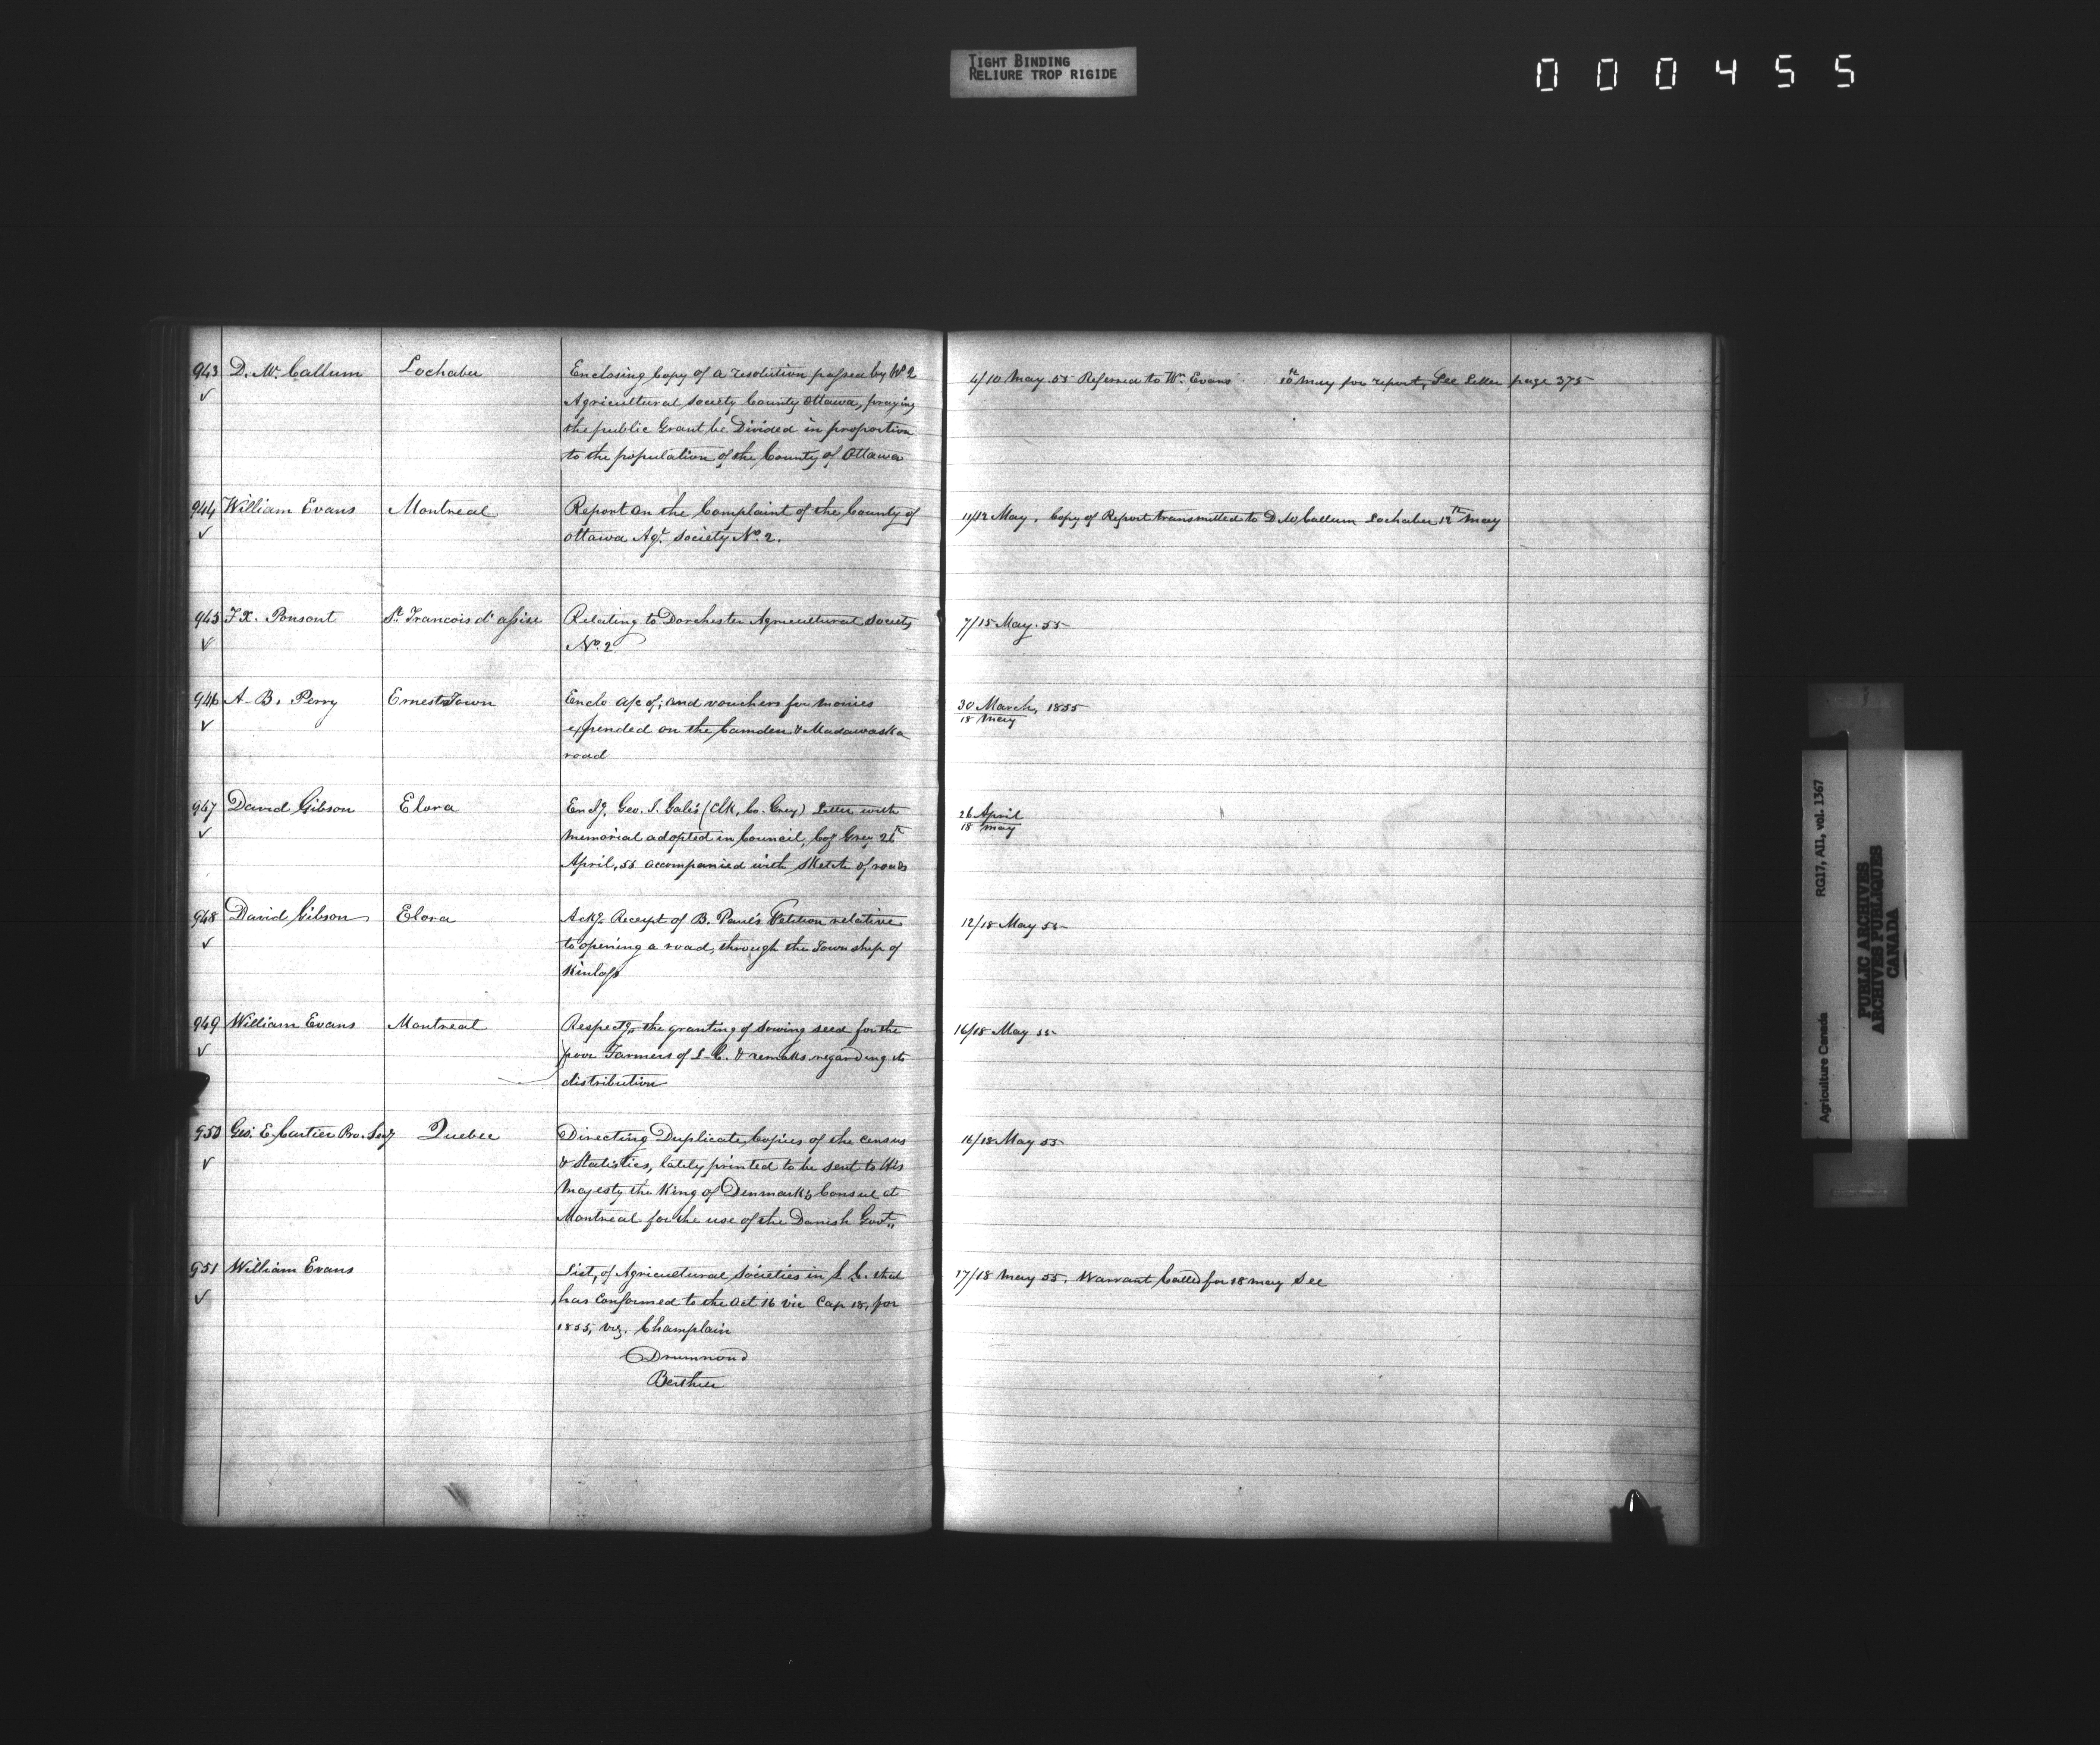 TIGHT BINDING
RELIURE TROP RIGIDE
000455
943 D. Mc. Callum Lochaber Enclosing Copy of a resolution passed by No 2
Agricultural Society County Ottawa, praying
the public Grant be Divided in proportion
to the population of the County of Ottawa
4/10 May 55 Referred to Wm. Evans 10th May for report, See Letter page 375
944 William Evans Montreal Report on the Complaint of the County of
Ottawa Agl. Society No. 2.
11/12 May, Copy of Report transmitted to D McCallum Lochaber 12th May
945 F X. Ponsont St. Francois d'assise Relating to Dorchester Agricultural Society
No. 2
7/15 May. 55
946 A. B. Perry Ernest Town Enclo a/c of, and vouchers for monies
expended on the Camden & Madawaska
road
30 March, 1855
18 May
947 David Gibson Elora Enclg. Geo. J. Gale's (Clk, Co. Grey) Letter with
Memorial adopted in Council, Coy Grey 26th
April, 55 accompanied with sketch of roads
26 April
18 May
948 David Gibson Elora Ackg. Receipt of B. Paul's Petition relative
to opening a road, through the Township of
Kinloss
12/18 May 55
949 William Evans Montreal Respectg. the granting of sowing seed for the
poor Farmers of L. C. & remarks regarding its
distribution
16/18 May 55
950 Geo. E. Cartier Pro. Secy Quebec Directing Duplicate Copies of the Census
& Statistics, lately printed to be sent to His
Majesty the King of Denmark's Consul at
Montreal for the use of the Danish Govt.
16/18 May 55
951 William Evans List, of Agricultural Societies in L. C. that
has Conformed to the Act 16 Vic Cap 18, for
1855, viz. Champlain
Drummond
Berthier
17/18 May 55, Warrant Called for 18 May See
Agriculture Canada RG17, AII, vol. 1367
PUBLIC ARCHIVES
ARCHIVES PUBLIQUES
CANADA